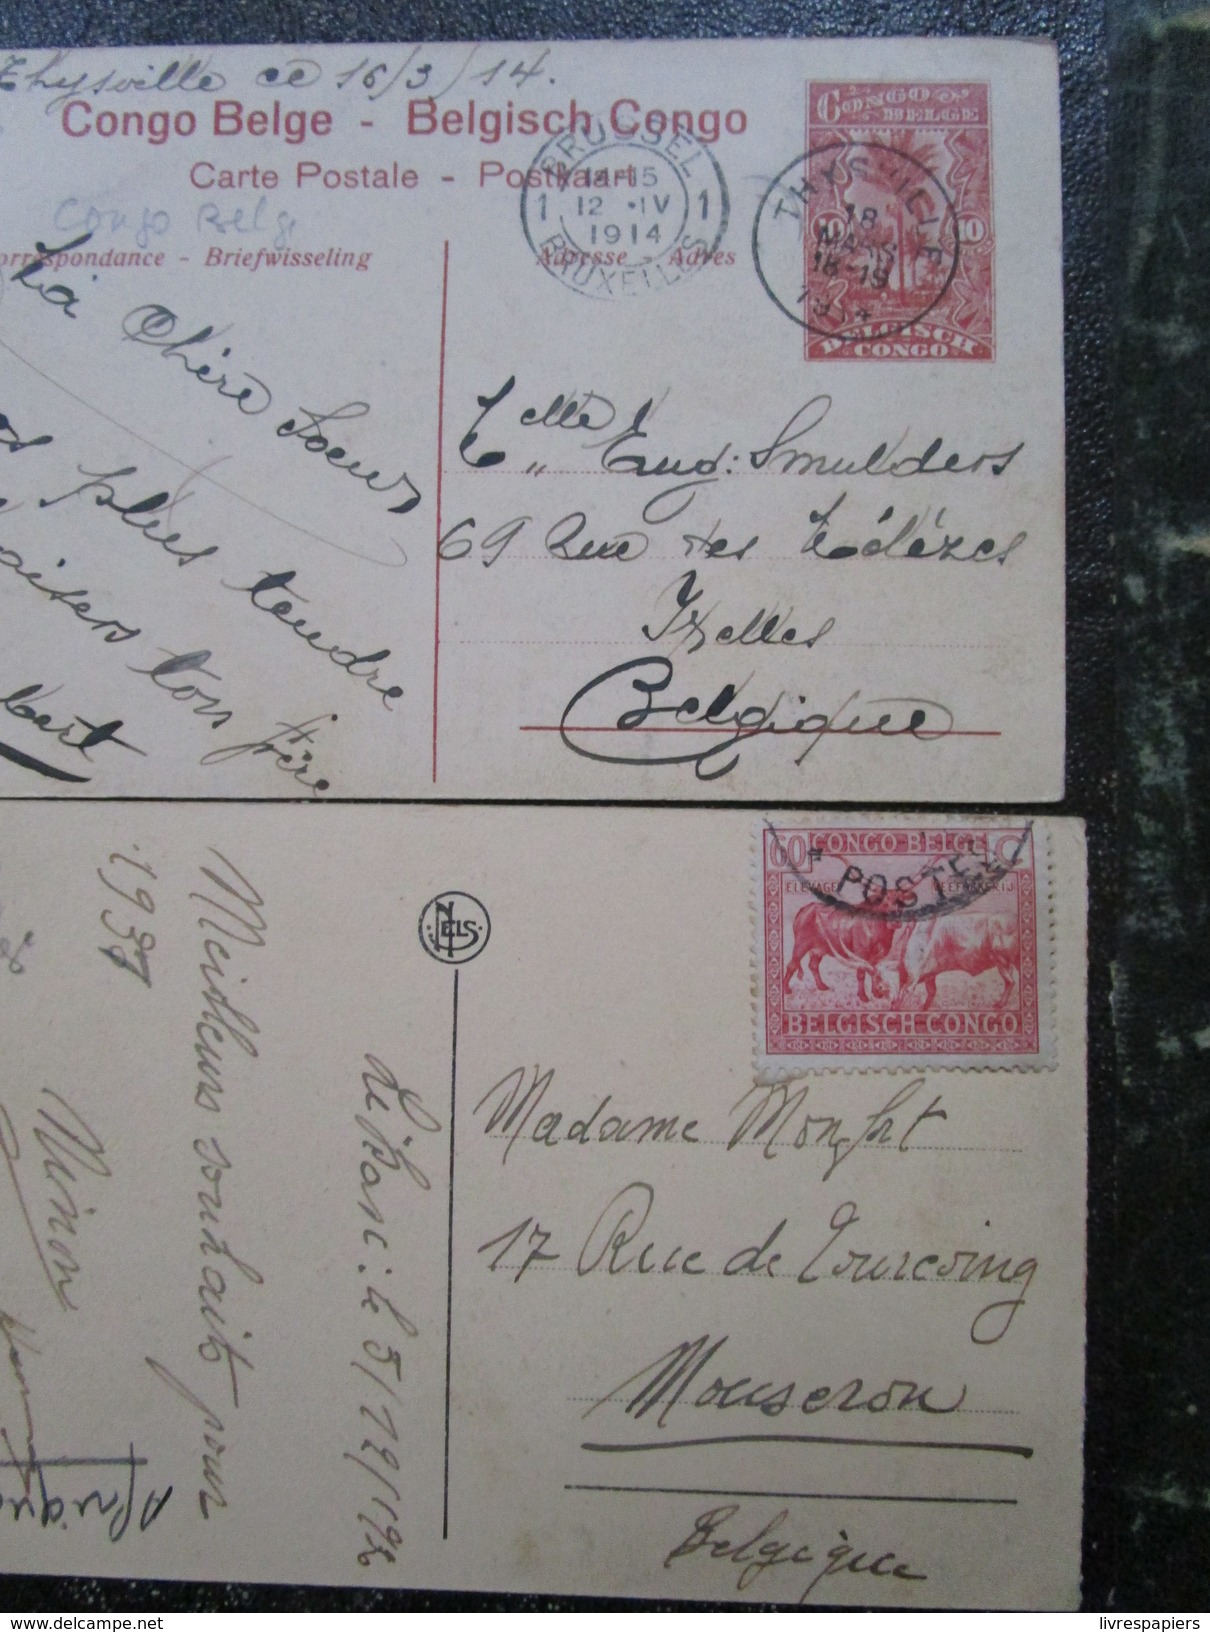 Thysville ce 16/3/14.
Congo Belge - Belgisch Congo
Carte Postale - Postkaart
Congo Belg
orrespondance - Briefwisseling
Adresse - Adres
BRUSSEL
1 14-15 1
12 • IV
1914
BRUXELLES
CONGO BELGE
10 10
BELGISCH CONGO
THYSVILLE
18
MARS
18-19
1914
Ma Chère Soeur
plus tendre
baisers ton frère
Eug: Smulders
69 Rue des
Ixelles
Belgique
1937
Meilleurs souhaits pour
Ninon
Afrique
NELS
le 5/12/1936
60 CONGO BELGE
ELEVAGE VEEFOKKERIJ
BELGISCH CONGO
* POSTES
Madame Monfort
17 Rue de Tourcoing
Mouscron
Belgique
delcampe.net
livrespapiers